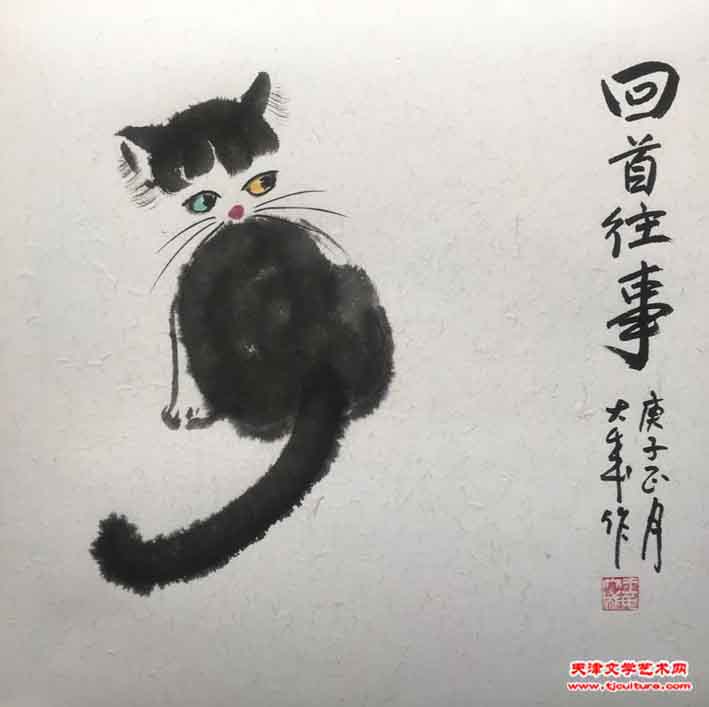 回首往事
庚子正月
大年作
天津文学艺术网
www.tjculture.com